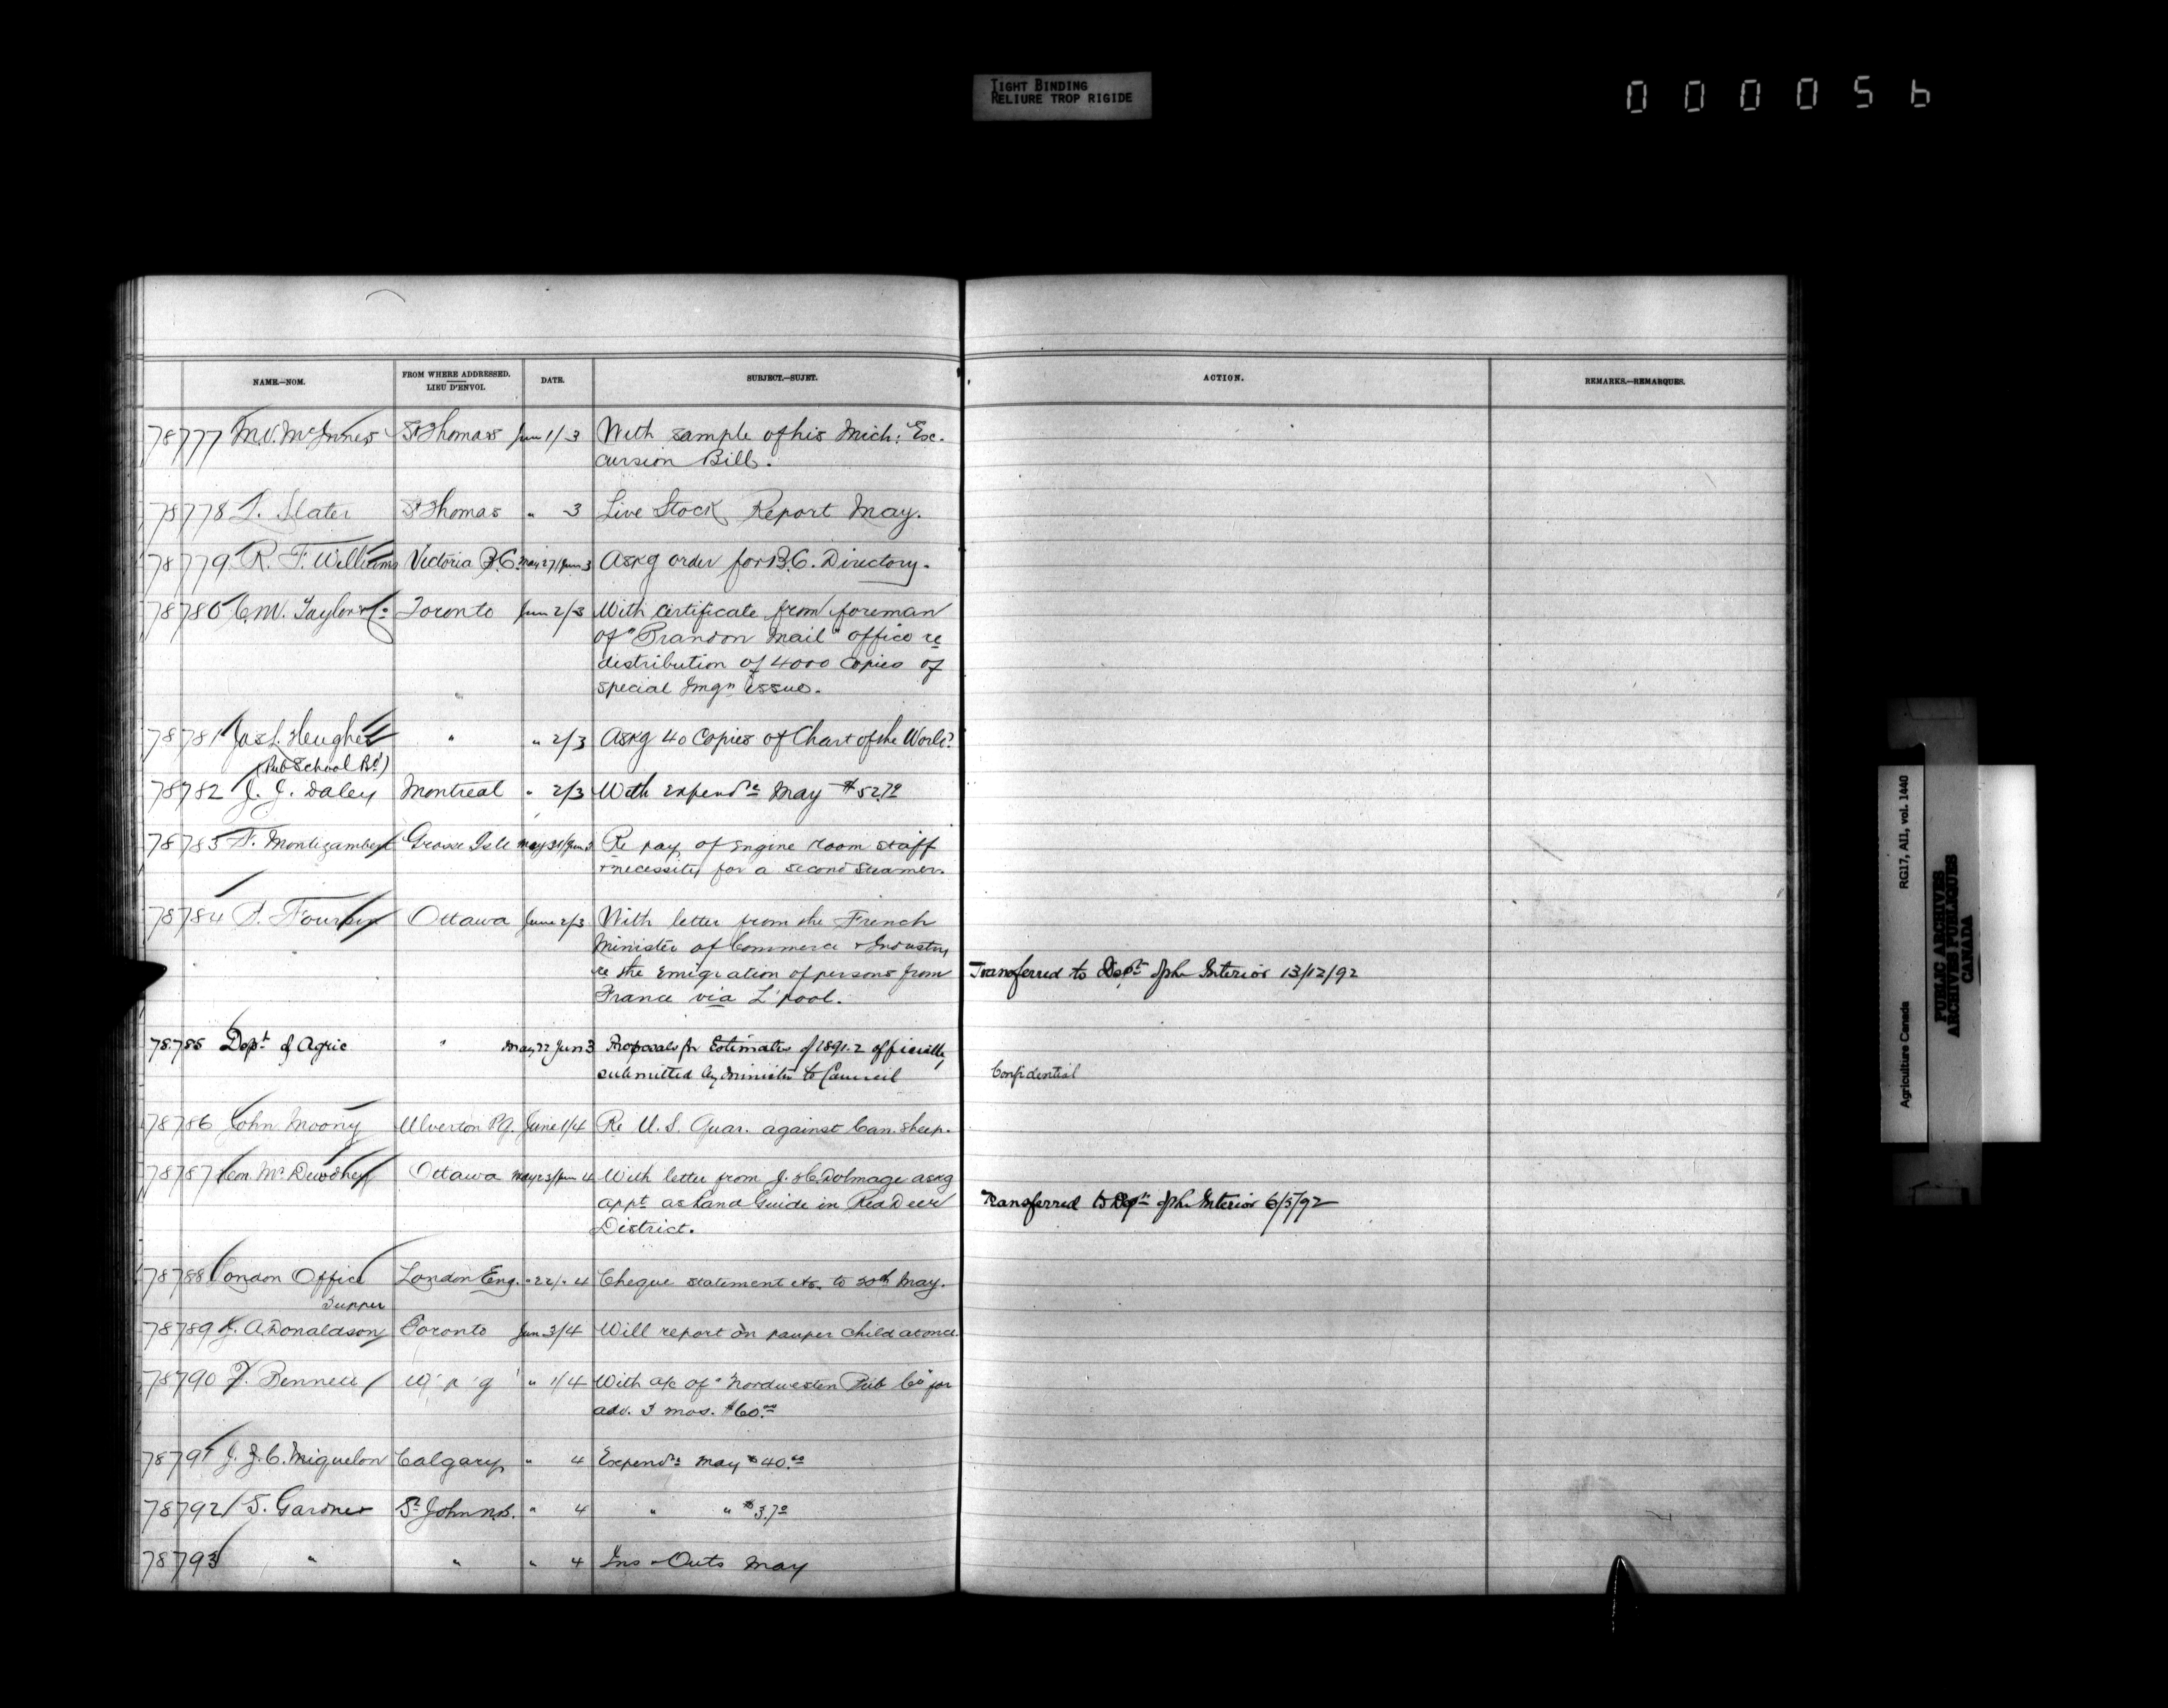 TIGHT BINDING
RELIURE TROP RIGIDE
000056
NAME.—NOM. FROM WHERE ADDRESSED. LIEU D'ENVOI. DATE. SUBJECT.—SUJET. ACTION. REMARKS.—REMARQUES.
78777 M.V. McInnes St Thomas Jun 1/3 With sample of his Mich: Ex-
cursion Bill.
78778 Slater St Thomas " 3 Live Stock Report May.
78779 R. T. Williams Victoria B.C. May 27/Jun 3 Askg order for B.C. Directory.
78780 C.W. Taylor & Co Toronto Jun 2/3 With certificate from foreman
of "Brandon Mail" office re
distribution of 4000 copies of
special Imgn issue.
78781 Jas L. Hughes " " 2/3 Askg 40 Copies of Chart of the World?
(Pub School Bd)
78782 J. J. Daley Montreal " 2/3 With expendre May $52.70
78783 F. Montizambert Grosse Isle May 31/Jun 3 Re pay of Engine room staff
+ necessity for a second steamer.
78784 Ottawa June 2/3 With letter from the French
Minister of Commerce & Industry
re the Emigration of persons from Transferred to Dept of the Interior 13/12/92
France via L'pool.
78785 Dept of Agric " May 27 Jun 3 Proposals for Estimates of 1891-2 officially
submitted by Minister to Council Confidential
78786 John Moony Ulverton P.Q. June 1/4 Re U.S. Quar. against Can. sheep.
78787 Ottawa May 23/Jun 4 With letter from J. H. C. Dolmage askg
appt as Land Guide in Red Deer Transferred to Dept of the Interior 6/5/92
District.
78788 London Office London Eng. " 22/" 4 Cheque statement etc. to 20th May.
Tupper
78789 J. A. Donaldson Toronto Jun 3/4 Will report on pauper child at once.
78790 Bennett W'p'g " 1/4 With a/c of "Nordwesten Pub Co for
adv. 3 mos. $60.00
78791 J. Z. C. Miquelon Calgary " 4 Expendre May $40.00
78792 S. Gardner St John N.B. " 4 " " $3.70
78793 " " " 4 Ins & Outs May
Agriculture Canada RG17, AII, vol. 1440
PUBLIC ARCHIVES
ARCHIVES PUBLIQUES
CANADA